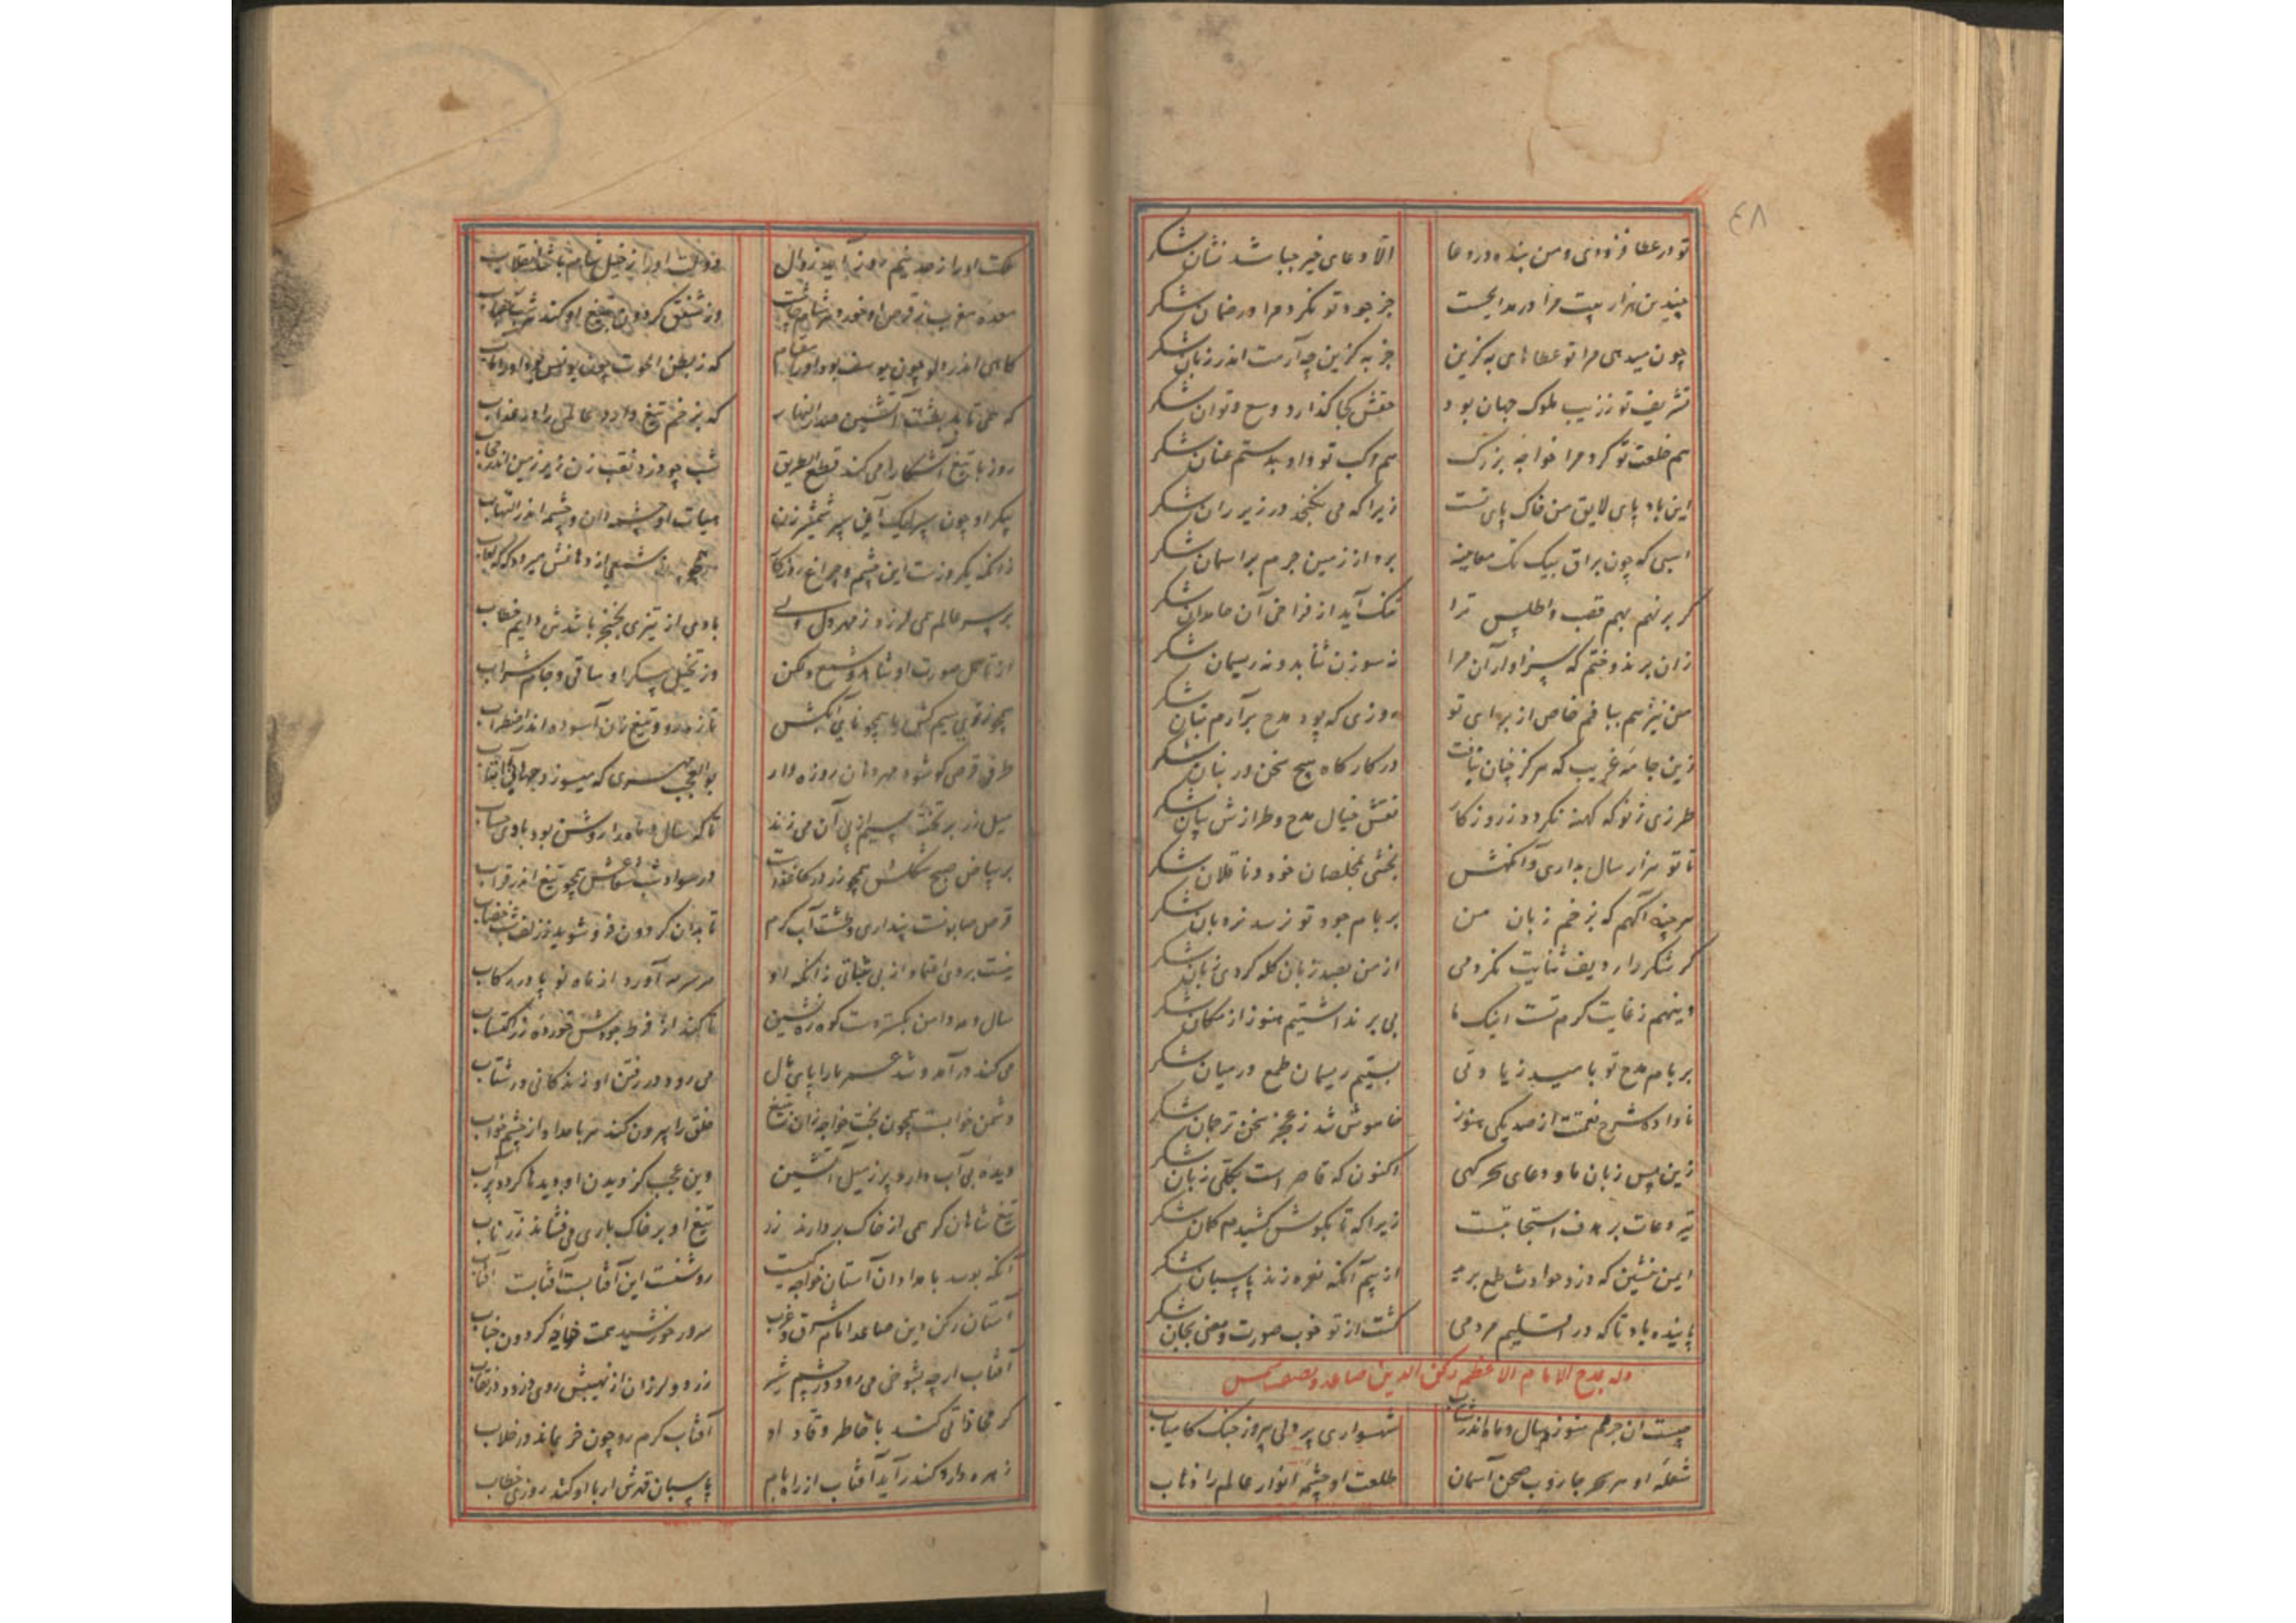 ٤٨
تو در عطا فزودی و من بنده در دعا الا دعای خیر جبا شد نشان شکر
چندین هزار بیت مرا در مدایحست جز جود تو نکرد مرا در ضمان شکر
چون میدهی مرا تو عطاهای به گزین جز به گزین چه آرمت اندر زبان شکر
تشریف تو ز زیب ملوک جهان بود حقش کجا گذارد وسع و توان شکر
هم خلعت تو کرد مرا خواجه بزرگ هم مرکب تو داد بدستم عنان شکر
این باد پای لایق من خاک پای تست زیرا که می نگنجد در زیر ران شکر
اسبی که چون براق بیک تک معاینه برد از زمین جرم بر اسمان شکر
گر بر نهم بهم قصب و اطلس ترا تنک آید از فراخی آن خاندان شکر
زان بر ندوختم که سزاوار آن مرا نه سوزن ثنا بد و نه ریسمان شکر
من نیز هم ببافم خاص از برای تو دوزی که پود مدح برآرم بنان شکر
زین جامه غریب که هرگز چنان نیافت در کارگاه هیچ سخن ور بنان شکر
طرزی ز نو که کهنه نگردد ز روزگار نقش خیال مدح و طرازش بیان شکر
تا تو هزار سال بداری و آنگهش بخشی بمخلصان خود و ناقلان شکر
هر چند آگهم که بزخم زبان من بر بام جود تو نرسد نردبان شکر
گر شکر را ردیف ثنایت نکردمی از من بصد زبان گله کردی زبان شکر
وینهم ز غایت کرم تست اینک ما پی بر نداشتیم هنوز از مکان شکر
بر بام مدح تو بامید زیادتی بستیم ریسمان طمع در میان شکر
نا داده شرح نعمتت از صد یکی هنوز خاموش شد ز عجز سخن ترجمان شکر
زین پس زبان ما و دعای سحرگهی اکنون که قاصر است بکلی زبان شکر
تیر دعات بر هدف استجابتست زیرا که تا بگوش کشیدم کمان شکر
ایمن نشین که دزد حوادث طمع برید از بیم آنکه نعره زند پاسبان شکر
پاینده باد تا که در اقلیم مردمی گشت از تو خوب صورت و معنی بجان شکر
وله یمدح الامام الاعظم رکن الدین صاعد و یصف الشمس
چیست ان جرم منور سال و ماه اندر شتاب شهسواری پر دلی پیروز جنک کامیاب
شعله او هر سحر جاروب صحن آسمان طلعت او چشمه انوار عالم را ذهاب
معده مغرب ز قرص او خورد هر شام چاشت وز شفق گردون بتیغ او کند
گاهی اندر دلو چون یوسف بود او را مقام که ز بطن الحوت چون یونس بود او را
که همی تابد بطشت آتشین که بزخم تیغ دارد عالمی را در عذاب
روز با تیغ آشکارا می کند قطع الطریق شب چو دزد نقب زن زیر زمین اندر حجاب
پیکر او چون سپر لیک آن سپر شمشیر زن
زانکه یکروزست این چشم و چراغ روزگار
بر سر عالم همی لرزد ز مهر دل با وی از تیزی بخنجر باشدش دایم خطاب
از تامل صورت او شاهد و شمع و لگن وز تخیل پیکر او ساقی و جام شراب
همچو زر قلبی سیم کش
طرفه قرصی کو شود مهر دهان روزه دار بوالعجب مهری که میسوزد جهانی
میل زر بر تخته سیم از پی آن می زند تا که سال و ماه را روشن بود با وی حساب
بر بیاض صبح شکلش همچو زر در کاغذ است در سواد شب شعاعش همچو تیغ اندر قراب
قرص صابونست پنداری و طشت آب گرم تا بدان گردون فرو شوید ز زلف شب خضاب
نیست بر وی اعتماد از بی ثباتی زانکه او هر سر مه آورد از ماه نو پا در رکاب
سال و مه دامن بگسترده ست کوه ره نشین تا کند از فرط جودش خورده زر اکتساب
می کند در آمد و شد عمر ما را پای مال می رود در رفتن او زندگانی در شتاب
دشمن خوابست همچون بخت خواجه زان ز تیغ خلق را بیرون کند هر بامداد از چشم خواب
دیده بی آب دارد پر ز میل آتشین وین عجب کز دیدن او دیدها گردد پر آب
تیغ شاهان گر همی از خاک بردارند زر تیغ او بر خاک باری می فشاند زر ناب
آنکه بوسد بامدادان آستان خواجه کیست روشنست این آفتابست آفتابست آفتاب
آستان رکن دین صاعد امام شرق و غرب سرور خورشید همت خواجه گردون جناب
آفتاب ار چه بشوخی می رود در چشم شیر زرد و لرزان از نهیبش روی دزدد در نقاب
گر محاذاتی کند با خاطر وقاد او آفتاب گرم رو چون خر بماند در خلاب
زهره دارد کندر آید آفتاب از راه بام پاسبان قدرش ار با او کند روزی خطاب